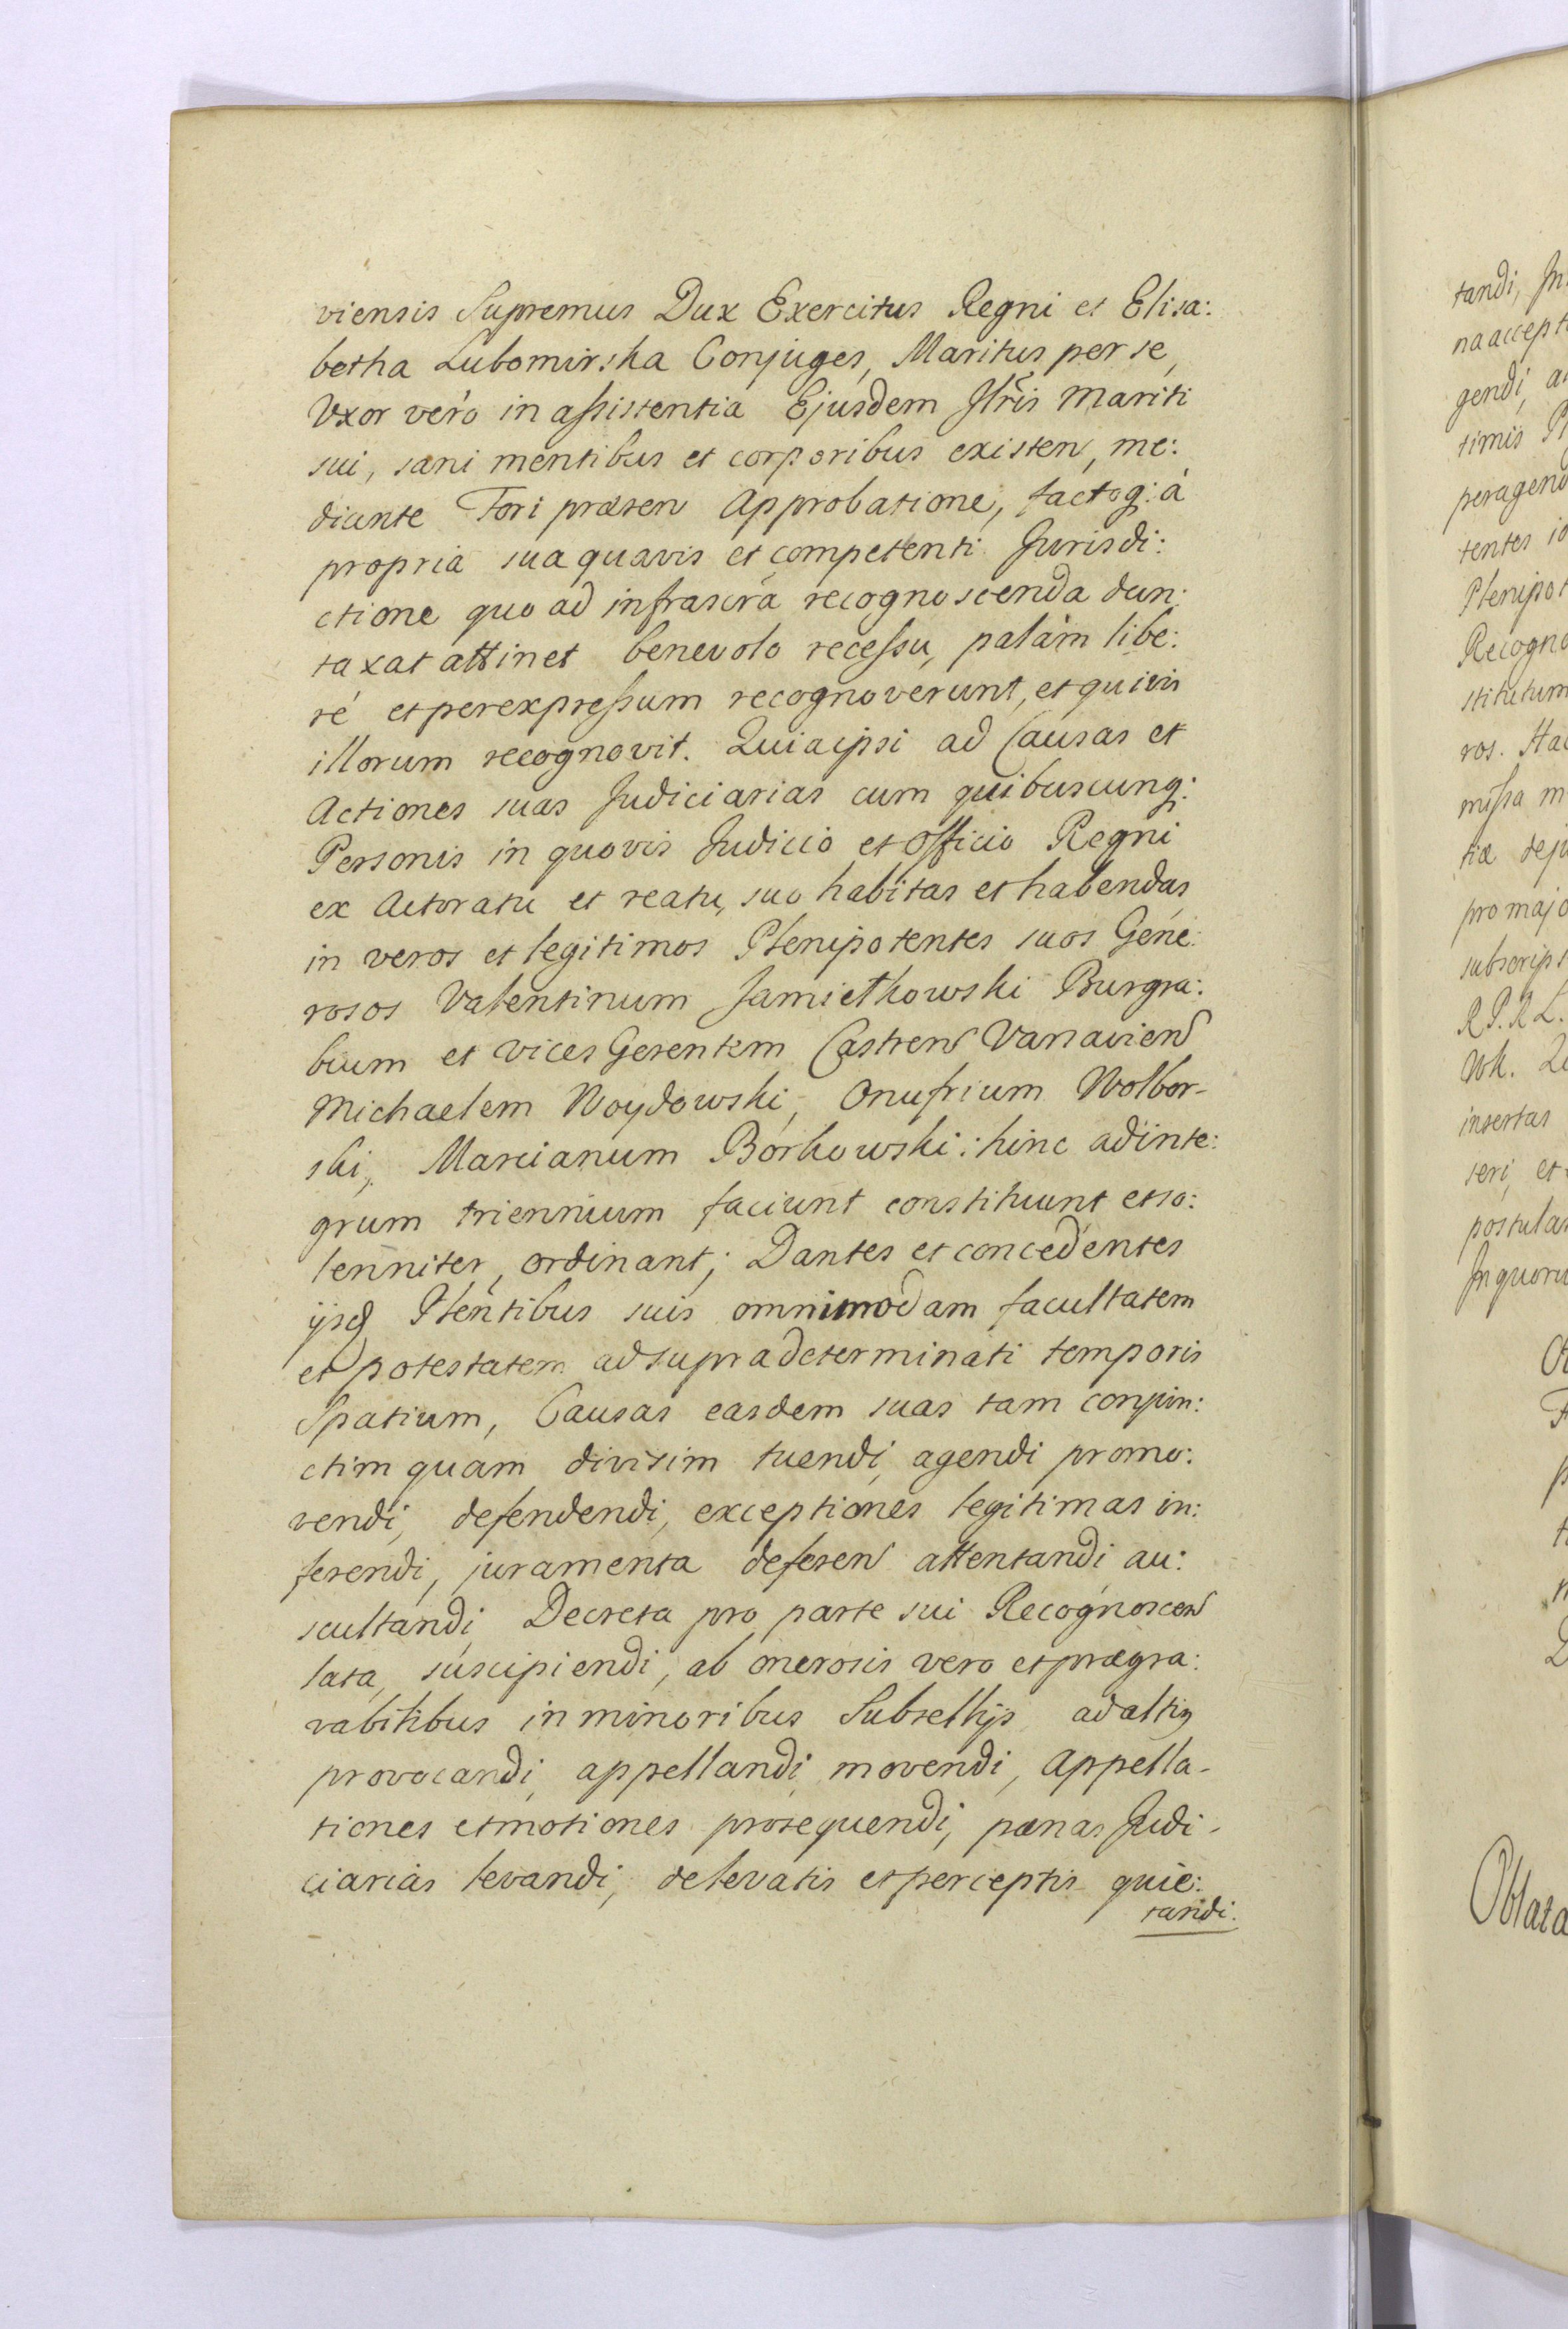 viensis Supremus Dux Exercitus Regni et Elisa:
betha Lubomirska Conjuges, Maritus per se,
Vxor verò in assistentia Ejusdem Illris Mariti
sui, sani mentibus et corporibus existen, me:
diante Fori præsen Approbatione, factoq: à
propria sua quavis et competenti Jurisdi:
ctione quo ad infrascra recognoscenda dun:
taxat attinet benevolo recessu, palàm libe:
ré et perexpressum recognoverunt, et quivis
illorum recognovit. Quia ipsi ad Causas et
Actiones suas Judiciarias cum quibuscunq:
Personis in quovis Judicio et Officio Regni
ex Actoratu et reatu, suo habitas et habendas
in veros et legitimos Plenipotentes suos Gene:
rosos Valentinum Jamiołkowski Burgra:
bium et Vices Gerentem Castren Varsavien
Michaelem Woydowski, Onufrium Wolbor-
ski, Marcianum Borkowski: hinc ad inte:
grum triennium faciunt constituunt et so:
lenniter, ordinant; Dantes et concedentes
ijsd Plentibus suis omnimodam facultatem
et potestatem ad supradeterminati temporis
Spatium, Causas easdem suas tam conjun:
ctim quam divisim tuendi, agendi promo:
vendi, defendendi, exceptiones legitimas in:
ferendi, juramenta deferen attentandi au:
scultandi, Decreta pro parte sui Recognoscen
lata, suscipiendi, ab onerosis vero et prægra:
vabilibus in minoribus Subsellijs ad altig
provocandi, appellandi, movendi, Appella-
tiones et motiones prosequendi, pænas Judi-
ciarias levandi, de levatis et perceptis quie:
tandi.
tandi, In
na accept
gendi, a
timis P
peragend
tentes i
Plenipot
Recogno
stitutum
ros. Ha
missa m
tiæ dep
pro majo
subscrips
R. P. R L.
Wk.
insertas
seri, et
postulan
In quoru
Oblata